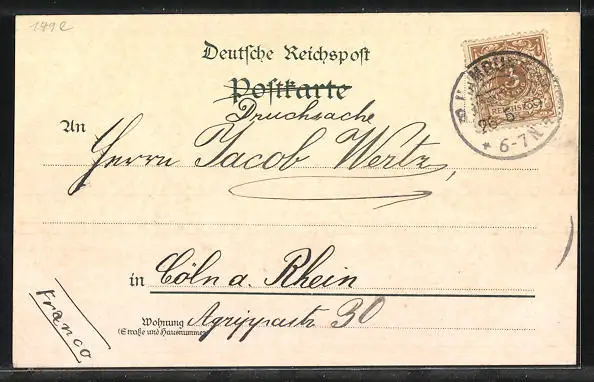 1892
Deutsche Reichspost
Postkarte
Drucksache
An
Herrn Jacob Wertz,
3
6-7N
in Cöln a. Rhein
Franco
Wohnung Agrippastr 30
(Straße und Hausnummer)